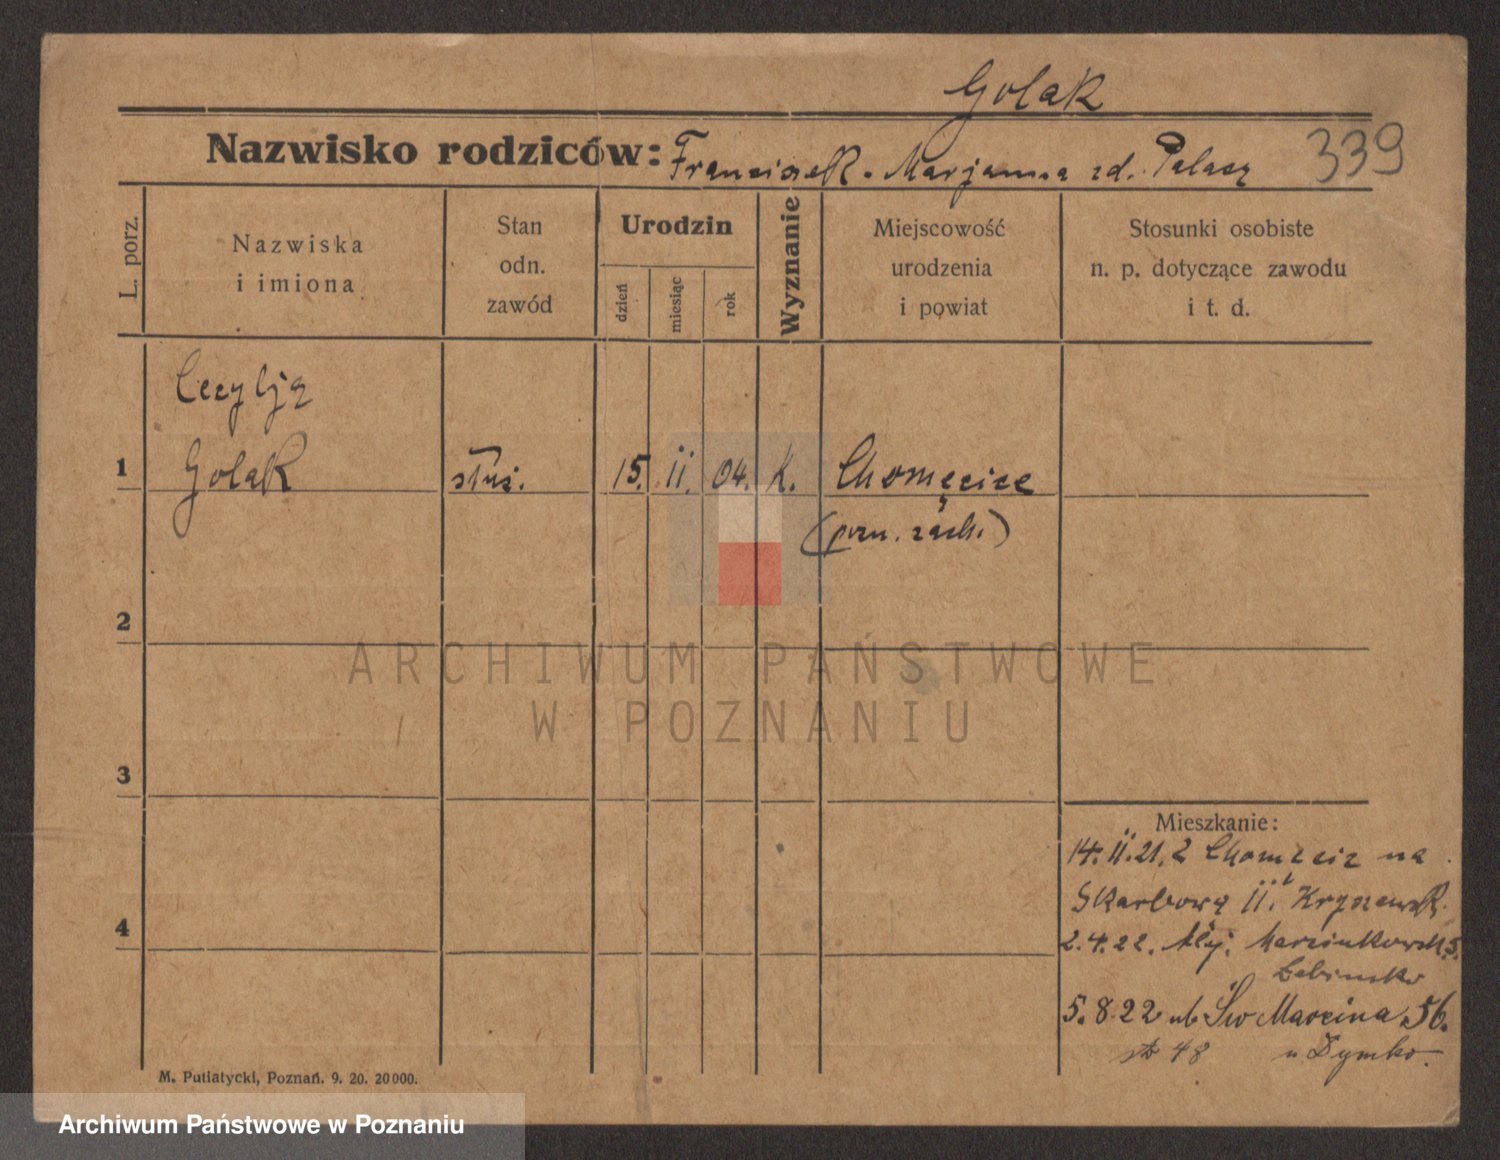 Golak
Nazwisko rodziców: Franciszek. Marjanna zd. Palacz 339
L. porz.
Nazwiska
i imiona
Stan
odn.
zawód
Urodzin
dzień
miesiąc
rok
Wyznanie
Miejscowość
urodzenia
i powiat
Stosunki osobiste
n. p. dotyczące zawodu
i t. d.
Cecylja
1 Golak służ. 15. II. 04. K. Chomęcice
(pozn. zach.)
2
3
4
Mieszkanie:
14.II.21. z Chomęcic na
Skarbową II.
2.4.22. Alej. Marcinkowsk. 5.
5.8.22 ul. Św Marcina 56.
48 u Dymko
M. Putiatycki, Poznań. 9. 20. 20000.
ARCHIWUM PAŃSTWOWE
W POZNANIU
Archiwum Państwowe w Poznaniu